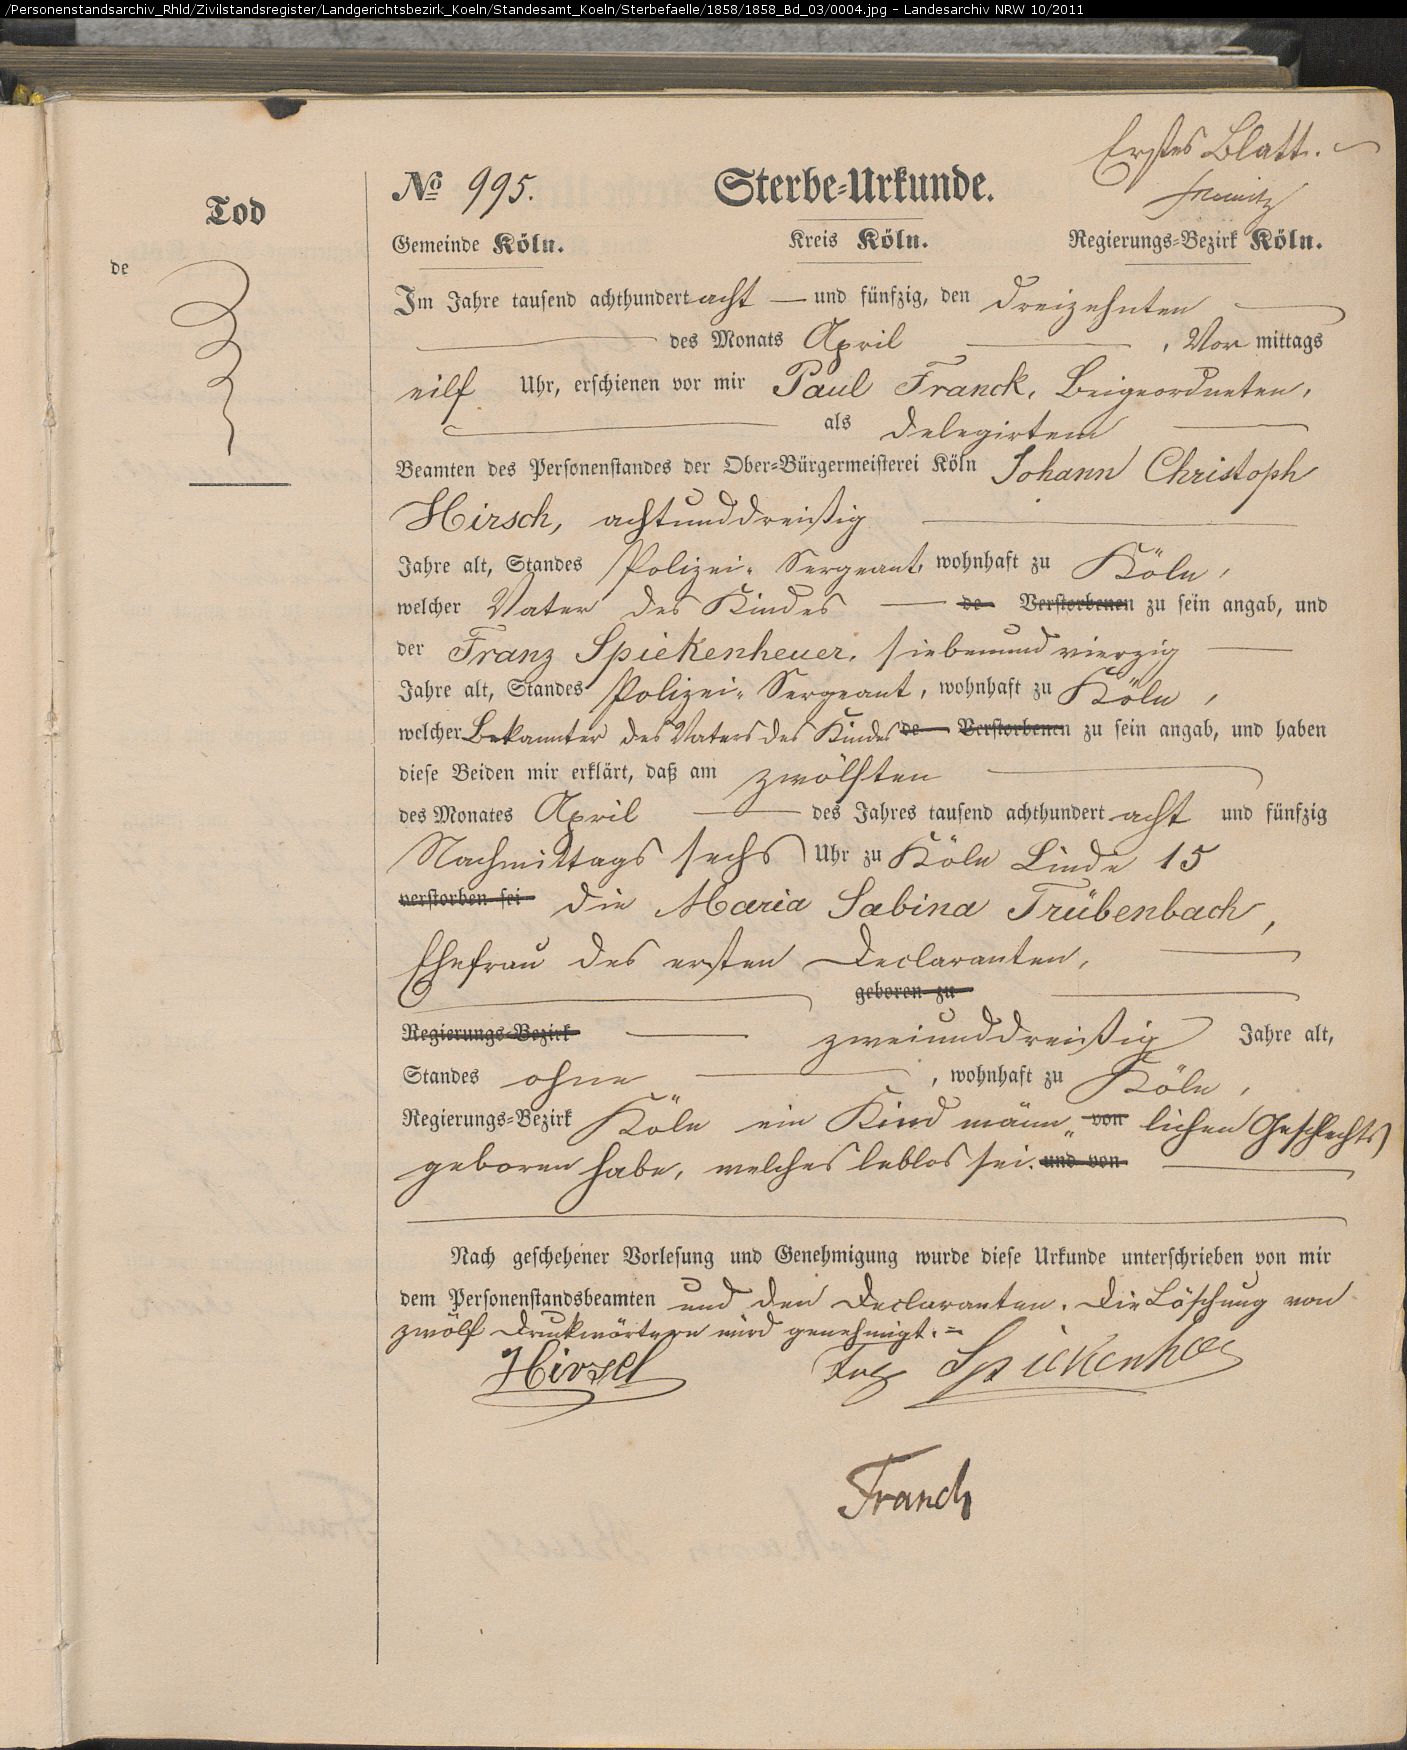 /Personenstandsarchiv_Rhld/Zivilstandsregister/Landgerichtsbezirk_Koeln/Standesamt_Koeln/Sterbefaelle/1858/1858_Bd_03/0004.jpg - Landesarchiv NRW 10/2011
Erstes Blatt.
Tod
de
No 995. Sterbe-Urkunde.
Gemeinde Köln. Kreis Köln. Regierungs-Bezirk Köln.
Im Jahre tausend achthundert acht und fünfzig, den dreizehnten
des Monats April , Vor mittags
eilf Uhr, erschienen vor mir Paul Franck, Beigeordneten,
als delegirtem
Beamten des Personenstandes der Ober-Bürgermeisterei Köln Johann Christoph
Hirsch, achtunddreißig
Jahre alt, Standes Polizei-Sergeant, wohnhaft zu Köln,
welcher Vater des Kindes de Verstorbenen zu sein angab, und
der Franz Spickenheuer, siebenundvierzig
Jahre alt, Standes Polizei-Sergeant, wohnhaft zu Köln,
welcher Bekannter des Vaters des Kindes de Verstorbenen zu sein angab, und haben
diese Beiden mir erklärt, daß am zwölften
des Monates April des Jahres tausend achthundert acht und fünfzig
Nachmittags sechs Uhr zu Köln Linde 15
verstorben sei die Maria Sabina Trübenbach,
Ehefrau des ersten Declaranten,
geboren zu
Regierungs-Bezirk zweiunddreißig Jahre alt,
Standes ohne , wohnhaft zu Köln,
Regierungs-Bezirk Köln ein Kind männ- von lichen Geschlechts
geboren habe, welches leblos sei. und von
Nach geschehener Vorlesung und Genehmigung wurde diese Urkunde unterschrieben von mir
dem Personenstandsbeamten und den Declaranten. Die Löschung von
zwölf Druckwörtern wird genehmigt.=
Hirsch Frz Spickenheu
Franck